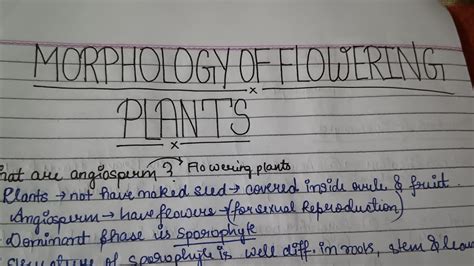 MORPHOLOGY OF FLOWERING
PLANTS
What are angiosperm ? → Flowering plants
Plants → not have naked seed → covered inside ovule & fruit.
Angiosperm → have flowers → (for sexual Reproduction)
Dominant phase is sporophyte
Structure of sporophyte is well diff. in roots, stem &